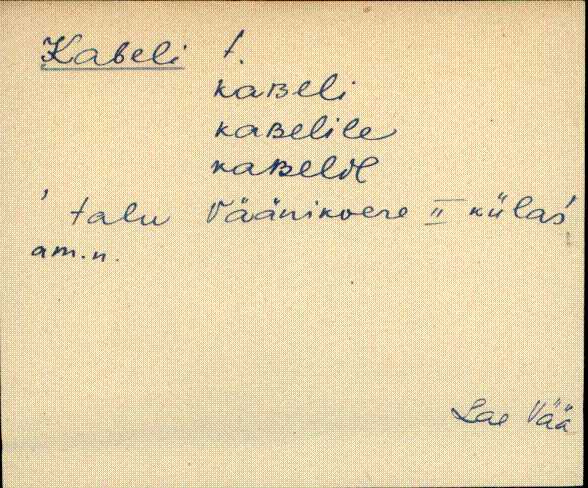 Kabeli t.
kaBeli
kaBelile
kaBelil
' talu Väänikvere II külas'
am.n.
Lae Vää